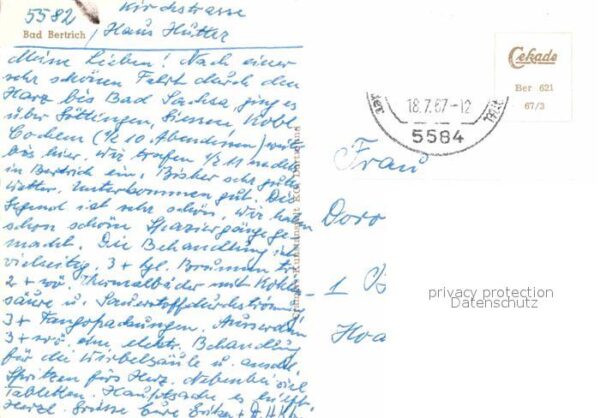 5582
Kirchstrasse
Bad Bertrich / Haus Hutter
Meine Lieben! Nach einer
sehr schönen Fahrt durch den
Harz bis Bad Sachsa, ging es
über Göttingen, Siegen, Kobl.
Cochem (½ 10 Abendessen) weiter
bis hier. Wir trafen ½ 11 nachts
in Bertrich ein. Bisher sehr gutes
Wetter. Unterkommen gut. Die
Gegend ist sehr schön. Wir haben
schon schöne Spaziergänge ge-
macht. Die Behandlung ist
vielseitig, 3 x tgl. Brunnen tr.
2 x wö. Thermalbäder mit Kohlen-
säure u. Sauerstoffdurchströmung
3 x Fangopackungen. Ausserdem
3 x wö. eine elektr. Behandlung
für die Wirbelsäule u. anschl.
Spritzen fürs Herz. Nebenbei viel
Tabletten. Hauptsache es hilft.
Herzl. Grüsse Eure
Cekade
Ber 621
67/3
18.7.67-12
5584
Frau
Doro
1 B
Hoa
privacy protection
Datenschutz